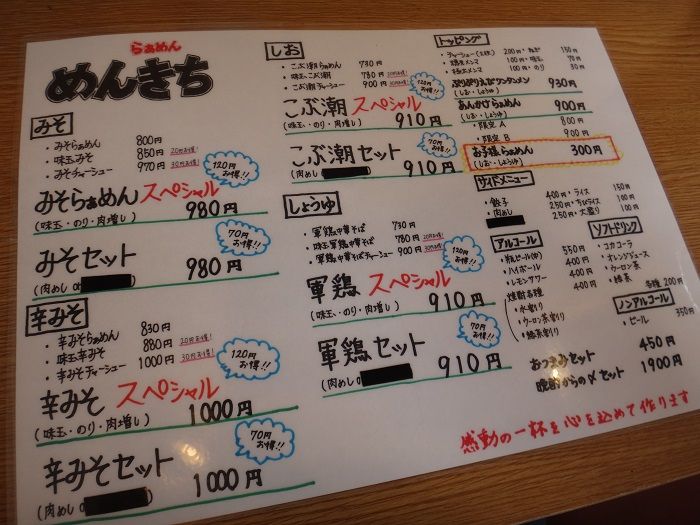 らぁめん
めんきち
みそ
・みそらぁめん 800円
・味玉みそ 850円 20円お得!
・みそチャーシュー 970円 30円お得!
120円お得!!
みそらぁめんスペシャル
(味玉・のり・肉増し) 980円
70円お得!!
みそセット
(肉めし or 980円
辛みそ
・辛みそらぁめん 830円
・味玉辛みそ 880円 20円お得!
・辛みそチャーシュー 1000円 30円お得!
120円お得!!
辛みそスペシャル
(味玉・のり・肉増し) 1000円
70円お得!!
辛みそセット
(肉めし o 1000円
しお
・こぶ潮らぁめん 730円
・味玉こぶ潮 780円 20円お得!
・こぶ潮チャーシュー 900円 30円お得!
120円お得!!
こぶ潮スペシャル
(味玉・のり・肉増し) 910円
70円お得!!
こぶ潮セット
(肉めし 910円
しょうゆ
・軍鶏中華そば 730円
・味玉軍鶏中華そば 780円 20円お得!
・軍鶏中華そばチャーシュー 900円 30円お得!
120円お得!!
軍鶏スペシャル
(味玉・のり・肉増し) 910円
70円お得!!
軍鶏セット
(肉めし 910円
トッピング
・チャーシュー 200円・ねぎ 150円
メンマ 100円・味玉 70円
メンマ 100円・のり 30円
ぷりぷりえびワンタンメン 930円
(しお・しょうゆ)
あんかけらぁめん 900円
(しお・しょうゆ)
・限定A 800円
・限定B 900円
お子様らぁめん 300円
(しお・しょうゆ)
サイドメニュー
・餃子 400円・ライス 150円
・肉めし 250円・ライス 100円
250円・大盛り 100円
アルコール
・瓶ビール(中) 550円
・ハイボール 400円
・レモンサワー 400円
・焼酎各種 400円
・水割り
・ウーロン茶割り
・緑茶割り
ソフトドリンク
・コカコーラ
・オレンジジュース
・ウーロン茶
・緑茶
各種 200円
ノンアルコール
・ビール 350円
おつまみセット 450円
晩酌からの〆セット 1900円
感動の一杯を心を込めて作ります